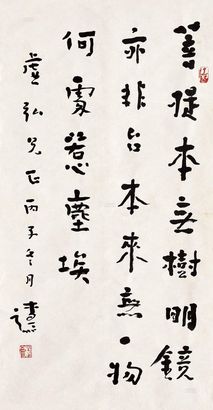 菩提本无樹明鏡
亦非台本來無一物
何處惹塵埃
虛弘兄正丙子冬月